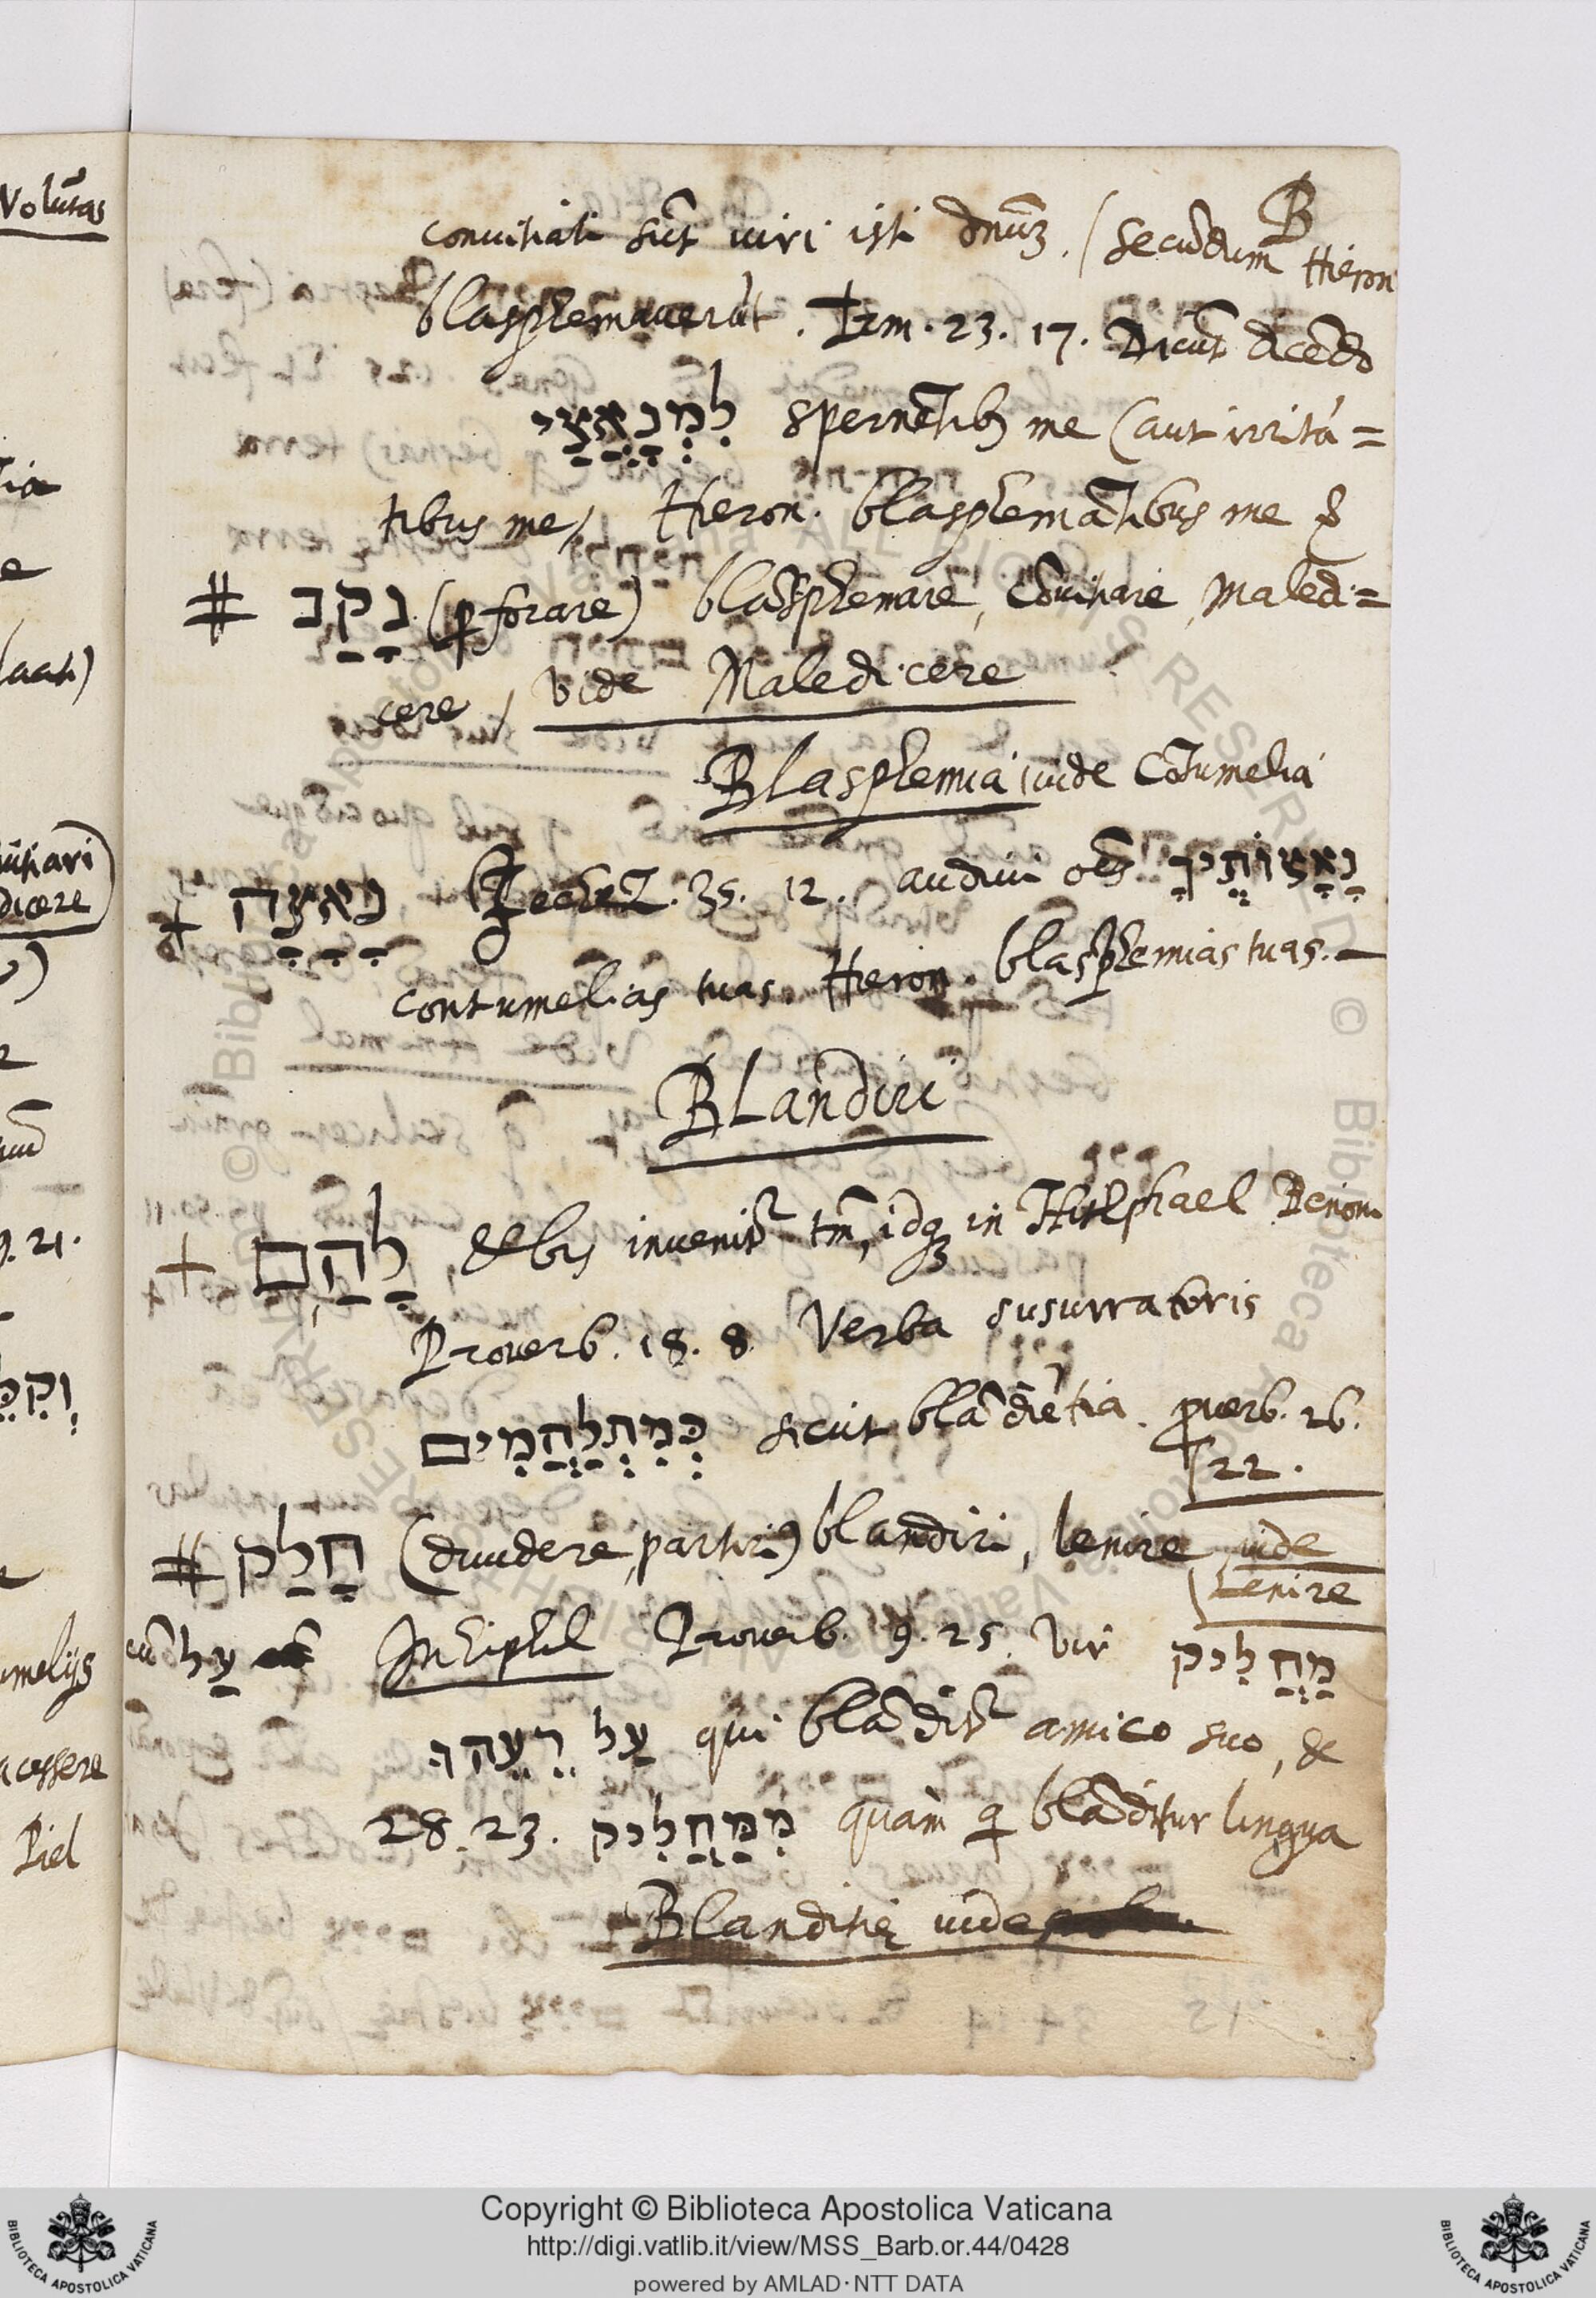 B
convitiati sūt viri isti dnūȝ. (Secūdum Hieron
blasphemaverūt. Irm. 23. 17. Dicūt dicēdo
לִמְנַאֲצַי spernētibȝ me (aut irritā=
tibus me) Hieron. blasphemātibus me &
# נָקַב (pforare) blāsphemare, cōvitiare, maledi=
cere, vide Maledicere
Blasphemia vide Cōtumelia
+ נְאָצָה Jechez. 35. 12. audivi oēs נָאָצוֹתֶיךָ
contumelias tuas. Hieron. blasphemias tuas. —
Blandiri
+ לָהַם, & bis invenitr tm̄, idqȝ in Hithphael Benon.
Proverb. 18. 8. Verba susurratoris
כְּמִתְלַהֲמִים sicut blādiētia. pverb. 26.
22.
# חָלַק (dividere, partiri) blandiri, lenire vide
Lenire
cū עַל In Hiphil Proverb. 9. 25. Vir מַחֲלִיק
עַל רֵעֵהוּ qui blāditr amico suo, &
28. 23. מִמַּחֲלִיק quam q blāditur lingua
Blanditię vide
Volūtas
tia
e
laati)
dicere
9. 21.
umelijs
acessere
Piel
Copyright © Biblioteca Apostolica Vaticana
http://digi.vatlib.it/view/MSS_Barb.or.44/0428
powered by AMLAD·NTT DATA
BIBLIOTECA APOSTOLICA VATICANA
BIBLIOTECA APOSTOLICA VATICANA